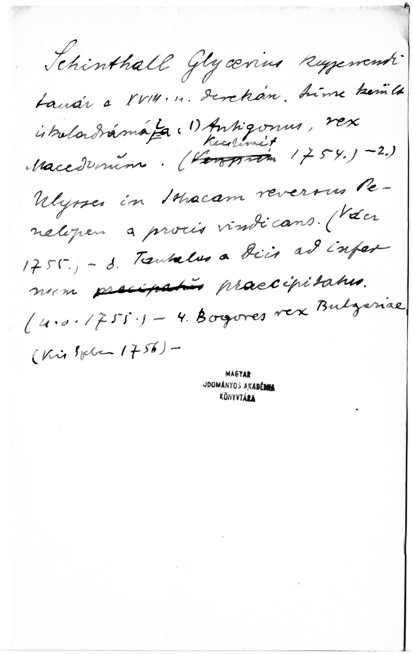 Schinthall Glycerius kegyesrendi
tanár a XVIII. sz. derekán. Színre került
iskoladrámái: 1) Antigonus, rex
Macedonum. (Kecskemét 1754.) – 2.)
Ulysses in Ithacam reversus Pe-
nelopen a procis vindicans. (Vácz
1755.) – 3. Tantalus a Diis ad infer
num praecipitatus.
(u. o. 1755.) – 4. Bogores rex Bulgariae
(Kis 1756) –
MAGYAR
TUDOMÁNYOS AKADÉMIA
KÖNYVTÁRA